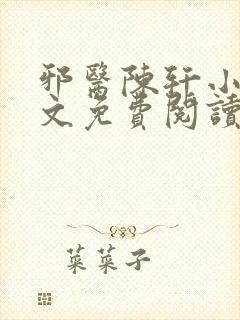 邪醫陳軒小
文免費閱讀
菜菜子